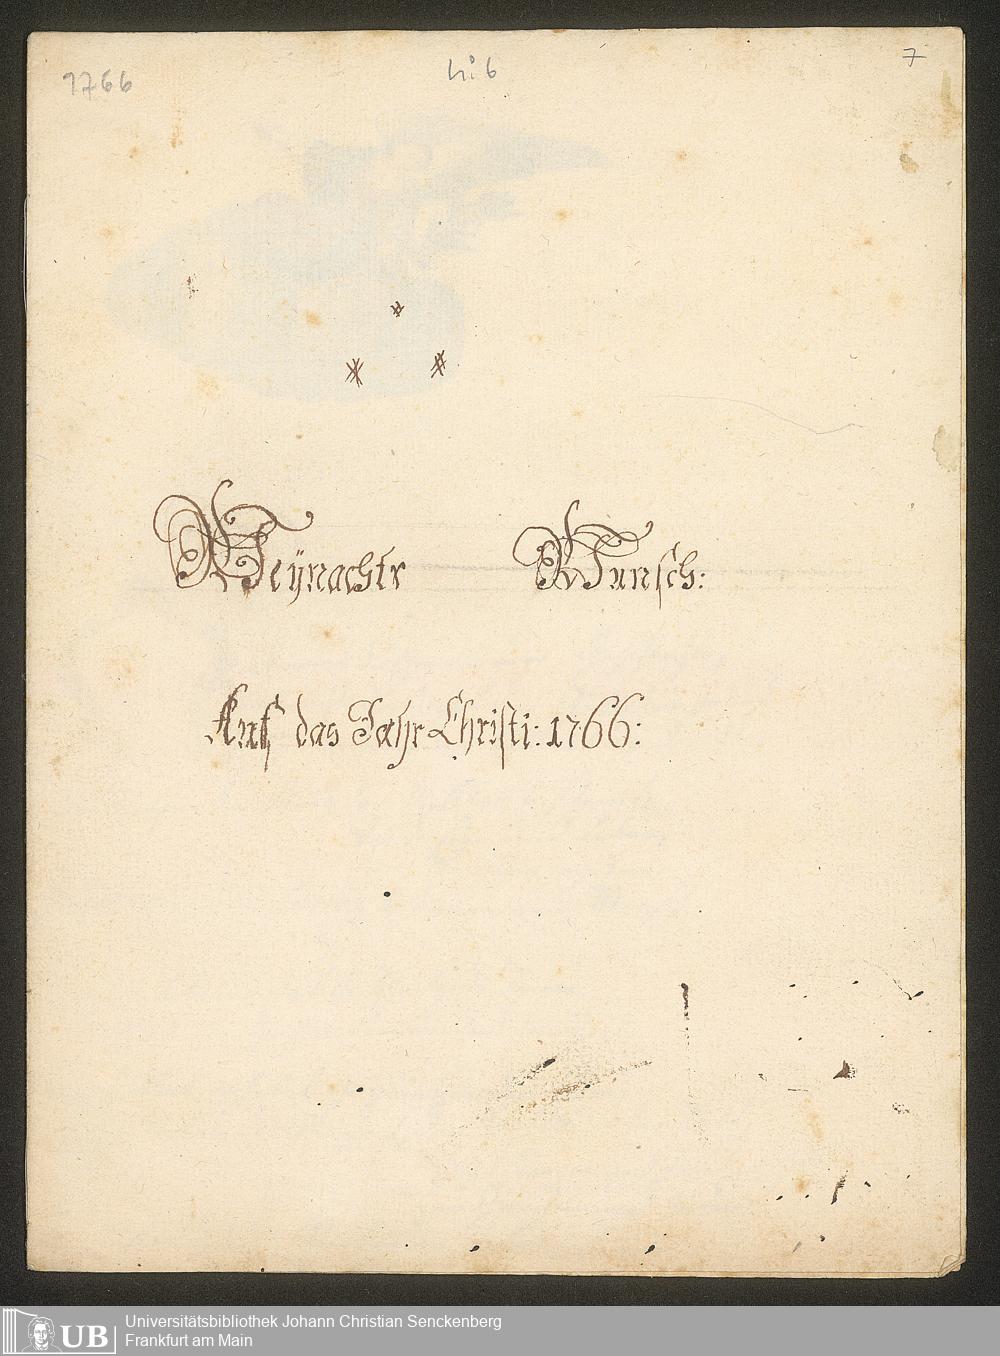 1766
N: 6
7
Weÿnachts Wunsch:
Auf das Jahr Christi: 1766:
UB
Universitätsbibliothek Johann Christian Senckenberg
Frankfurt am Main